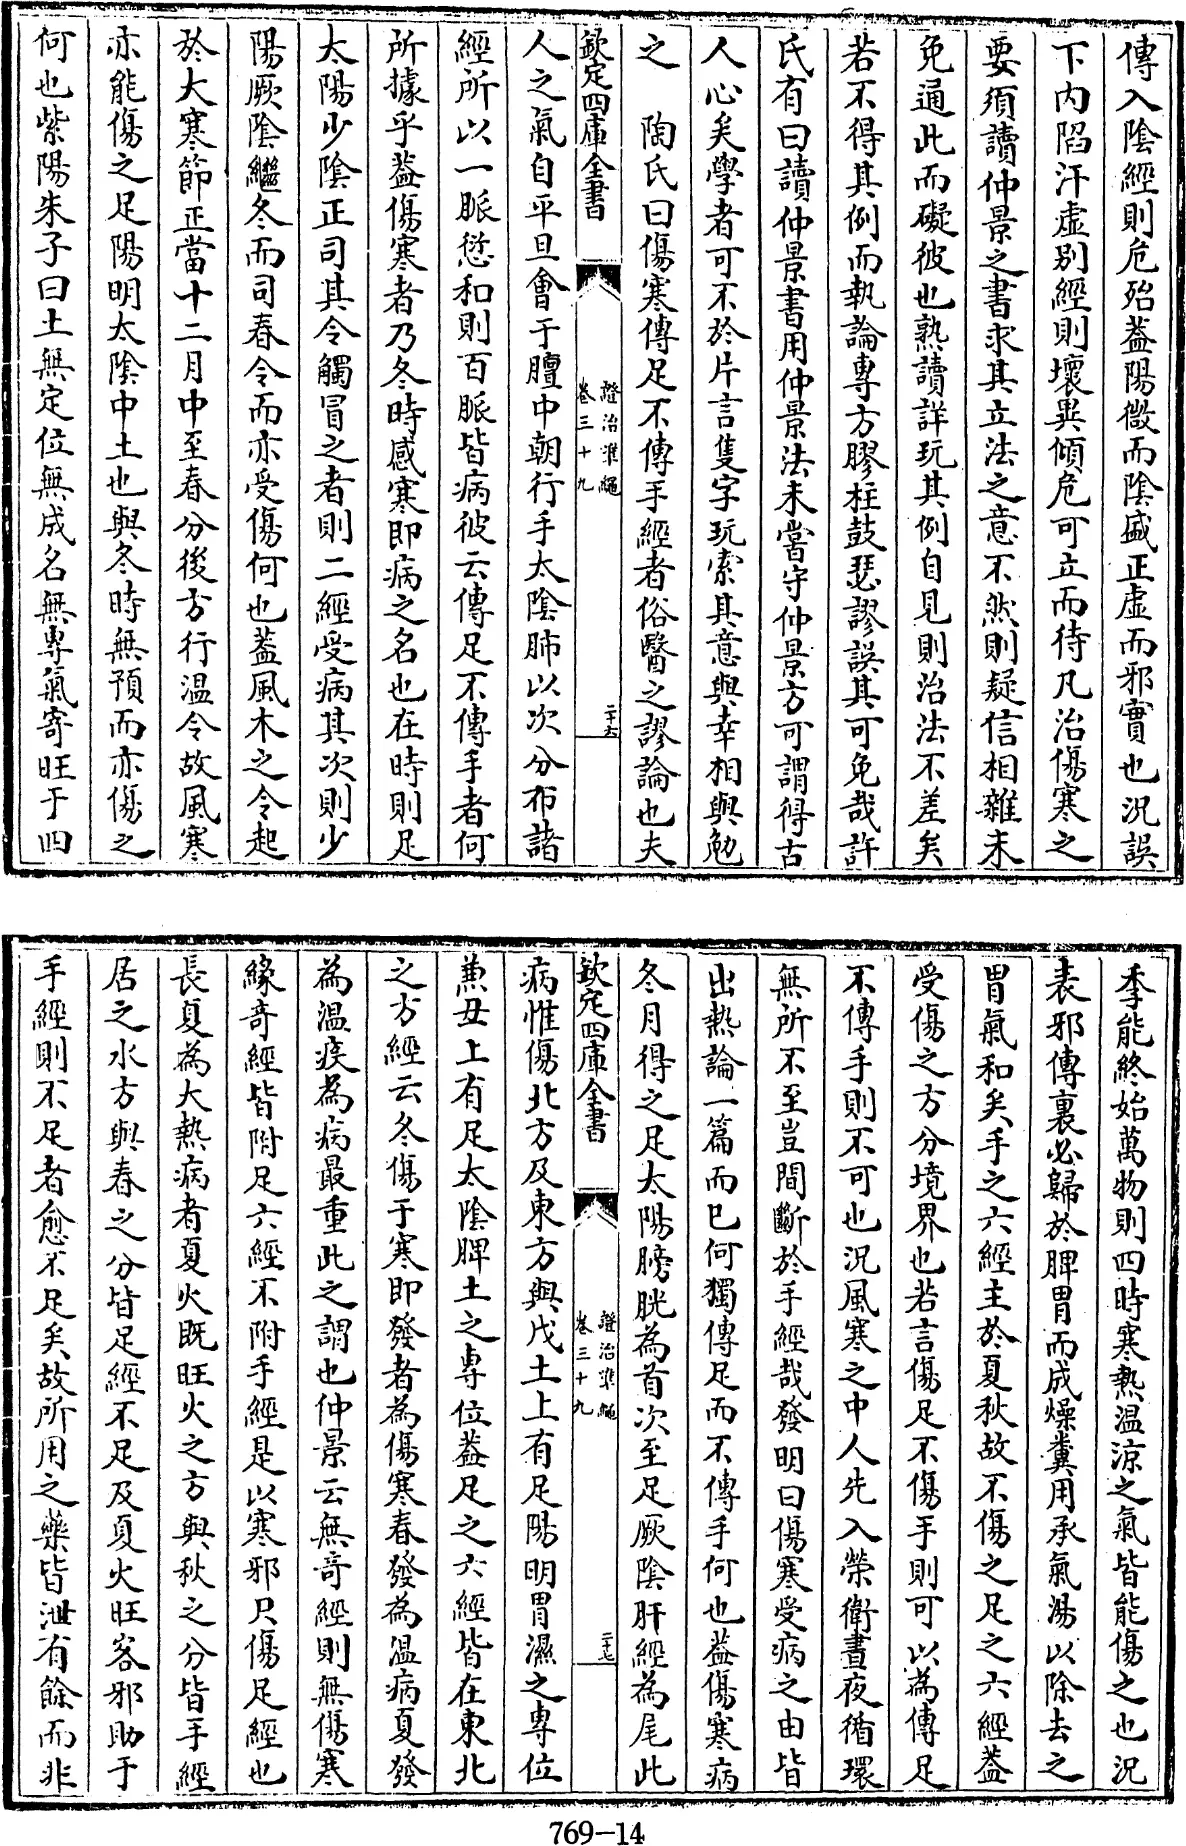 傳入陰經則危殆葢陽微而陰盛正虚而邪實也況誤
下内陷汗虚别經則壞異傾危可立而待凡治傷寒之
要須讀仲景之書求其立法之意不然則疑信相雜未
免通此而礙彼也熟讀詳玩其例自見則治法不差矣
若不得其例而執論專方膠柱鼓瑟謬誤其可免哉許
氏有曰讀仲景書用仲景法未嘗守仲景方可謂得古
人心矣學者可不於片言隻字玩索其意與幸相與勉
之　陶氏曰傷寒傳足不傳手經者俗醫之謬論也夫
欽定四庫全書
證治準繩
卷三十九
二十六
人之氣自平旦會于膻中朝行手太陰肺以次分布諸
經所以一脈愆和則百脈皆病彼云傳足不傳手者何
所據乎葢傷寒者乃冬時感寒即病之名也在時則足
太陽少陰正司其令觸冒之者則二經受病其次則少
陽厥陰繼冬而司春令而亦受傷何也葢風木之令起
於大寒節正當十二月中至春分後方行温令故風寒
亦能傷之足陽明太陰中土也與冬時無預而亦傷之
何也紫陽朱子曰土無定位無成名無專氣寄旺于四
季能終始萬物則四時寒熱温涼之氣皆能傷之也況
表邪傳裏必歸於脾胃而成燥糞用承氣湯以除去之
胃氣和矣手之六經主於夏秋故不傷之足之六經葢
受傷之方分境界也若言傷足不傷手則可以為傳足
不傳手則不可也況風寒之中人先入榮衛晝夜循環
無所不至豈間斷於手經哉發明曰傷寒受病之由皆
出熱論一篇而已何獨傳足而不傳手何也葢傷寒病
冬月得之足太陽膀胱為首次至足厥陰肝經為尾此
欽定四庫全書
證治準繩
卷三十九
二十七
病惟傷北方及東方與戊土上有足陽明胃濕之專位
兼丑上有足太陰脾土之專位葢足之六經皆在東北
之方經云冬傷于寒即發者為傷寒春發為温病夏發
為温疾為病最重此之謂也仲景云無奇經則無傷寒
緣奇經皆附足六經不附手經是以寒邪只傷足經也
長夏為大熱病者夏火既旺火之方與秋之分皆手經
居之水方與春之分皆足經不足及夏火旺客邪助于
手經則不足者愈不足矣故所用之藥皆泄有餘而非
769-14